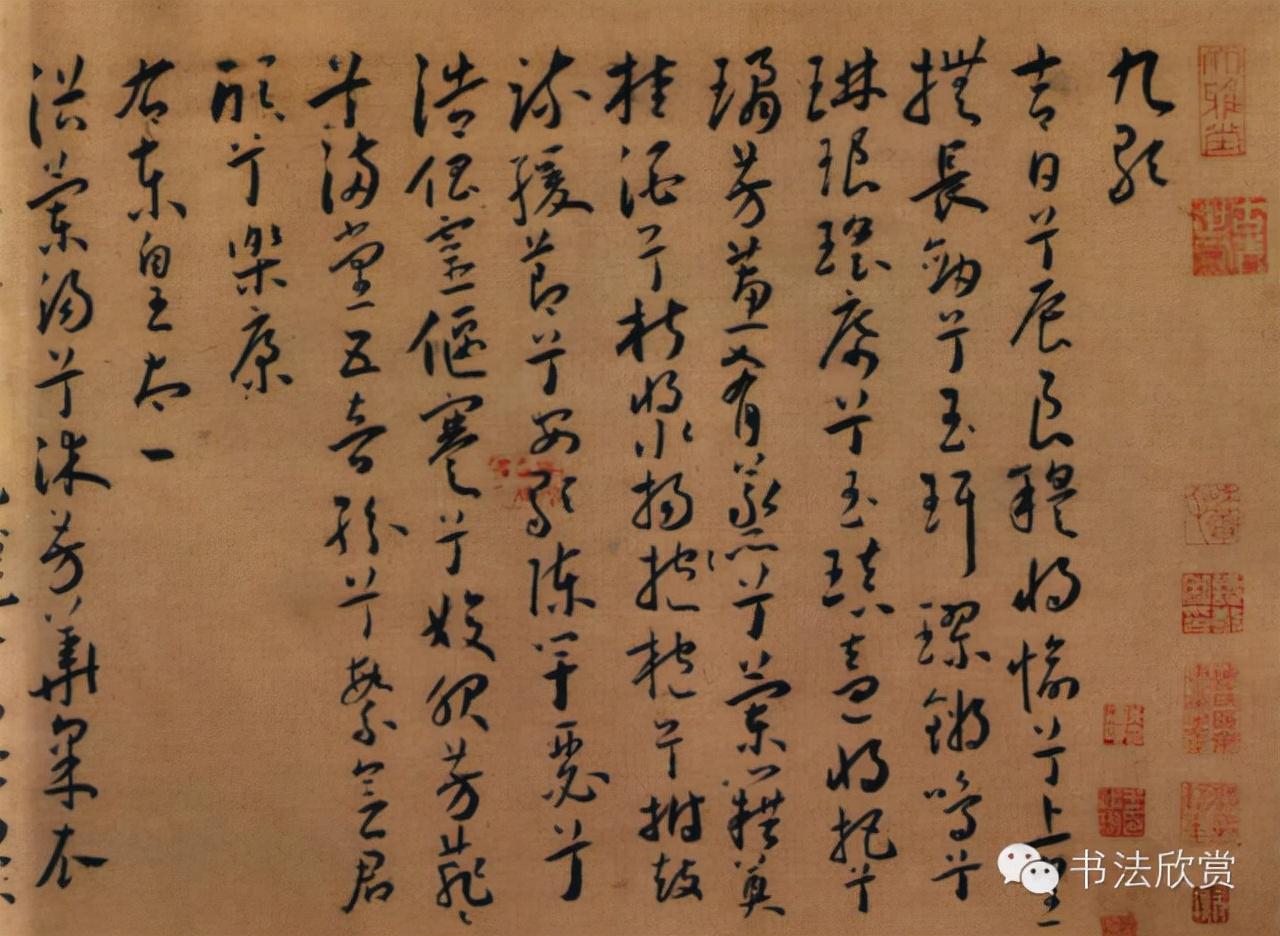 九歌
吉日兮辰良穆將愉兮上皇
撫長劍兮玉珥璆鏘鳴兮
琳琅瑤席兮玉瑱盍將把兮
瓊芳蕙肴蒸兮蘭藉奠
桂酒兮椒漿揚抱枹兮拊鼓
疏緩節兮安歌陳竽瑟兮
浩倡靈偃蹇兮姣服芳菲〻
兮滿堂五音紛兮繁會君
欣兮樂康
右東皇太一
浴蘭湯兮沐芳華采衣
书法欣赏